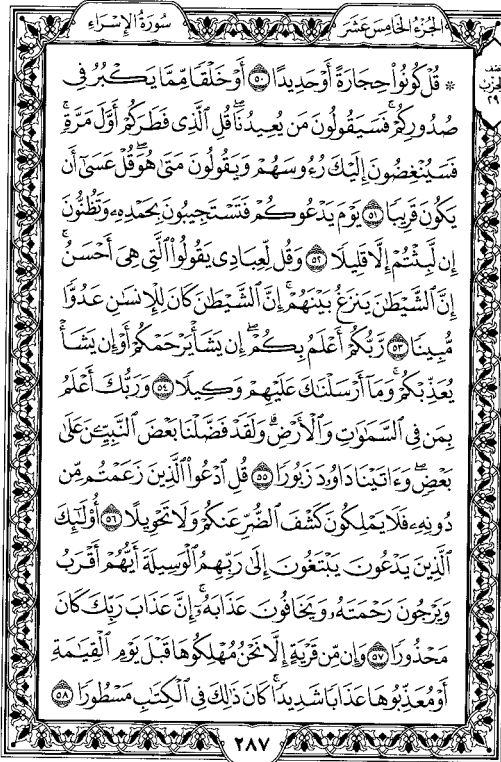 الجزء الخامس عشر
سورة الإسراء
نصف
الحزب
٢٩
* قُلْ كُونُوا۟ حِجَارَةً أَوْ حَدِيدًا ۝٥٠ أَوْ خَلْقًا مِّمَّا يَكْبُرُ فِى
صُدُورِكُمْ ۚ فَسَيَقُولُونَ مَن يُعِيدُنَا ۖ قُلِ ٱلَّذِى فَطَرَكُمْ أَوَّلَ مَرَّةٍ ۚ
فَسَيُنْغِضُونَ إِلَيْكَ رُءُوسَهُمْ وَيَقُولُونَ مَتَىٰ هُوَ ۖ قُلْ عَسَىٰٓ أَن
يَكُونَ قَرِيبًا ۝٥١ يَوْمَ يَدْعُوكُمْ فَتَسْتَجِيبُونَ بِحَمْدِهِۦ وَتَظُنُّونَ
إِن لَّبِثْتُمْ إِلَّا قَلِيلًا ۝٥٢ وَقُل لِّعِبَادِى يَقُولُوا۟ ٱلَّتِى هِىَ أَحْسَنُ ۚ
إِنَّ ٱلشَّيْطَٰنَ يَنزَغُ بَيْنَهُمْ ۚ إِنَّ ٱلشَّيْطَٰنَ كَانَ لِلْإِنسَٰنِ عَدُوًّا
مُّبِينًا ۝٥٣ رَّبُّكُمْ أَعْلَمُ بِكُمْ ۖ إِن يَشَأْ يَرْحَمْكُمْ أَوْ إِن يَشَأْ
يُعَذِّبْكُمْ ۚ وَمَآ أَرْسَلْنَٰكَ عَلَيْهِمْ وَكِيلًا ۝٥٤ وَرَبُّكَ أَعْلَمُ
بِمَن فِى ٱلسَّمَٰوَٰتِ وَٱلْأَرْضِ ۗ وَلَقَدْ فَضَّلْنَا بَعْضَ ٱلنَّبِيِّۦنَ عَلَىٰ
بَعْضٍ ۖ وَءَاتَيْنَا دَاوُۥدَ زَبُورًا ۝٥٥ قُلِ ٱدْعُوا۟ ٱلَّذِينَ زَعَمْتُم مِّن
دُونِهِۦ فَلَا يَمْلِكُونَ كَشْفَ ٱلضُّرِّ عَنكُمْ وَلَا تَحْوِيلًا ۝٥٦ أُو۟لَٰٓئِكَ
ٱلَّذِينَ يَدْعُونَ يَبْتَغُونَ إِلَىٰ رَبِّهِمُ ٱلْوَسِيلَةَ أَيُّهُمْ أَقْرَبُ
وَيَرْجُونَ رَحْمَتَهُۥ وَيَخَافُونَ عَذَابَهُۥٓ ۚ إِنَّ عَذَابَ رَبِّكَ كَانَ
مَحْذُورًا ۝٥٧ وَإِن مِّن قَرْيَةٍ إِلَّا نَحْنُ مُهْلِكُوهَا قَبْلَ يَوْمِ ٱلْقِيَٰمَةِ
أَوْ مُعَذِّبُوهَا عَذَابًا شَدِيدًا ۚ كَانَ ذَٰلِكَ فِى ٱلْكِتَٰبِ مَسْطُورًا ۝٥٨
٢٨٧